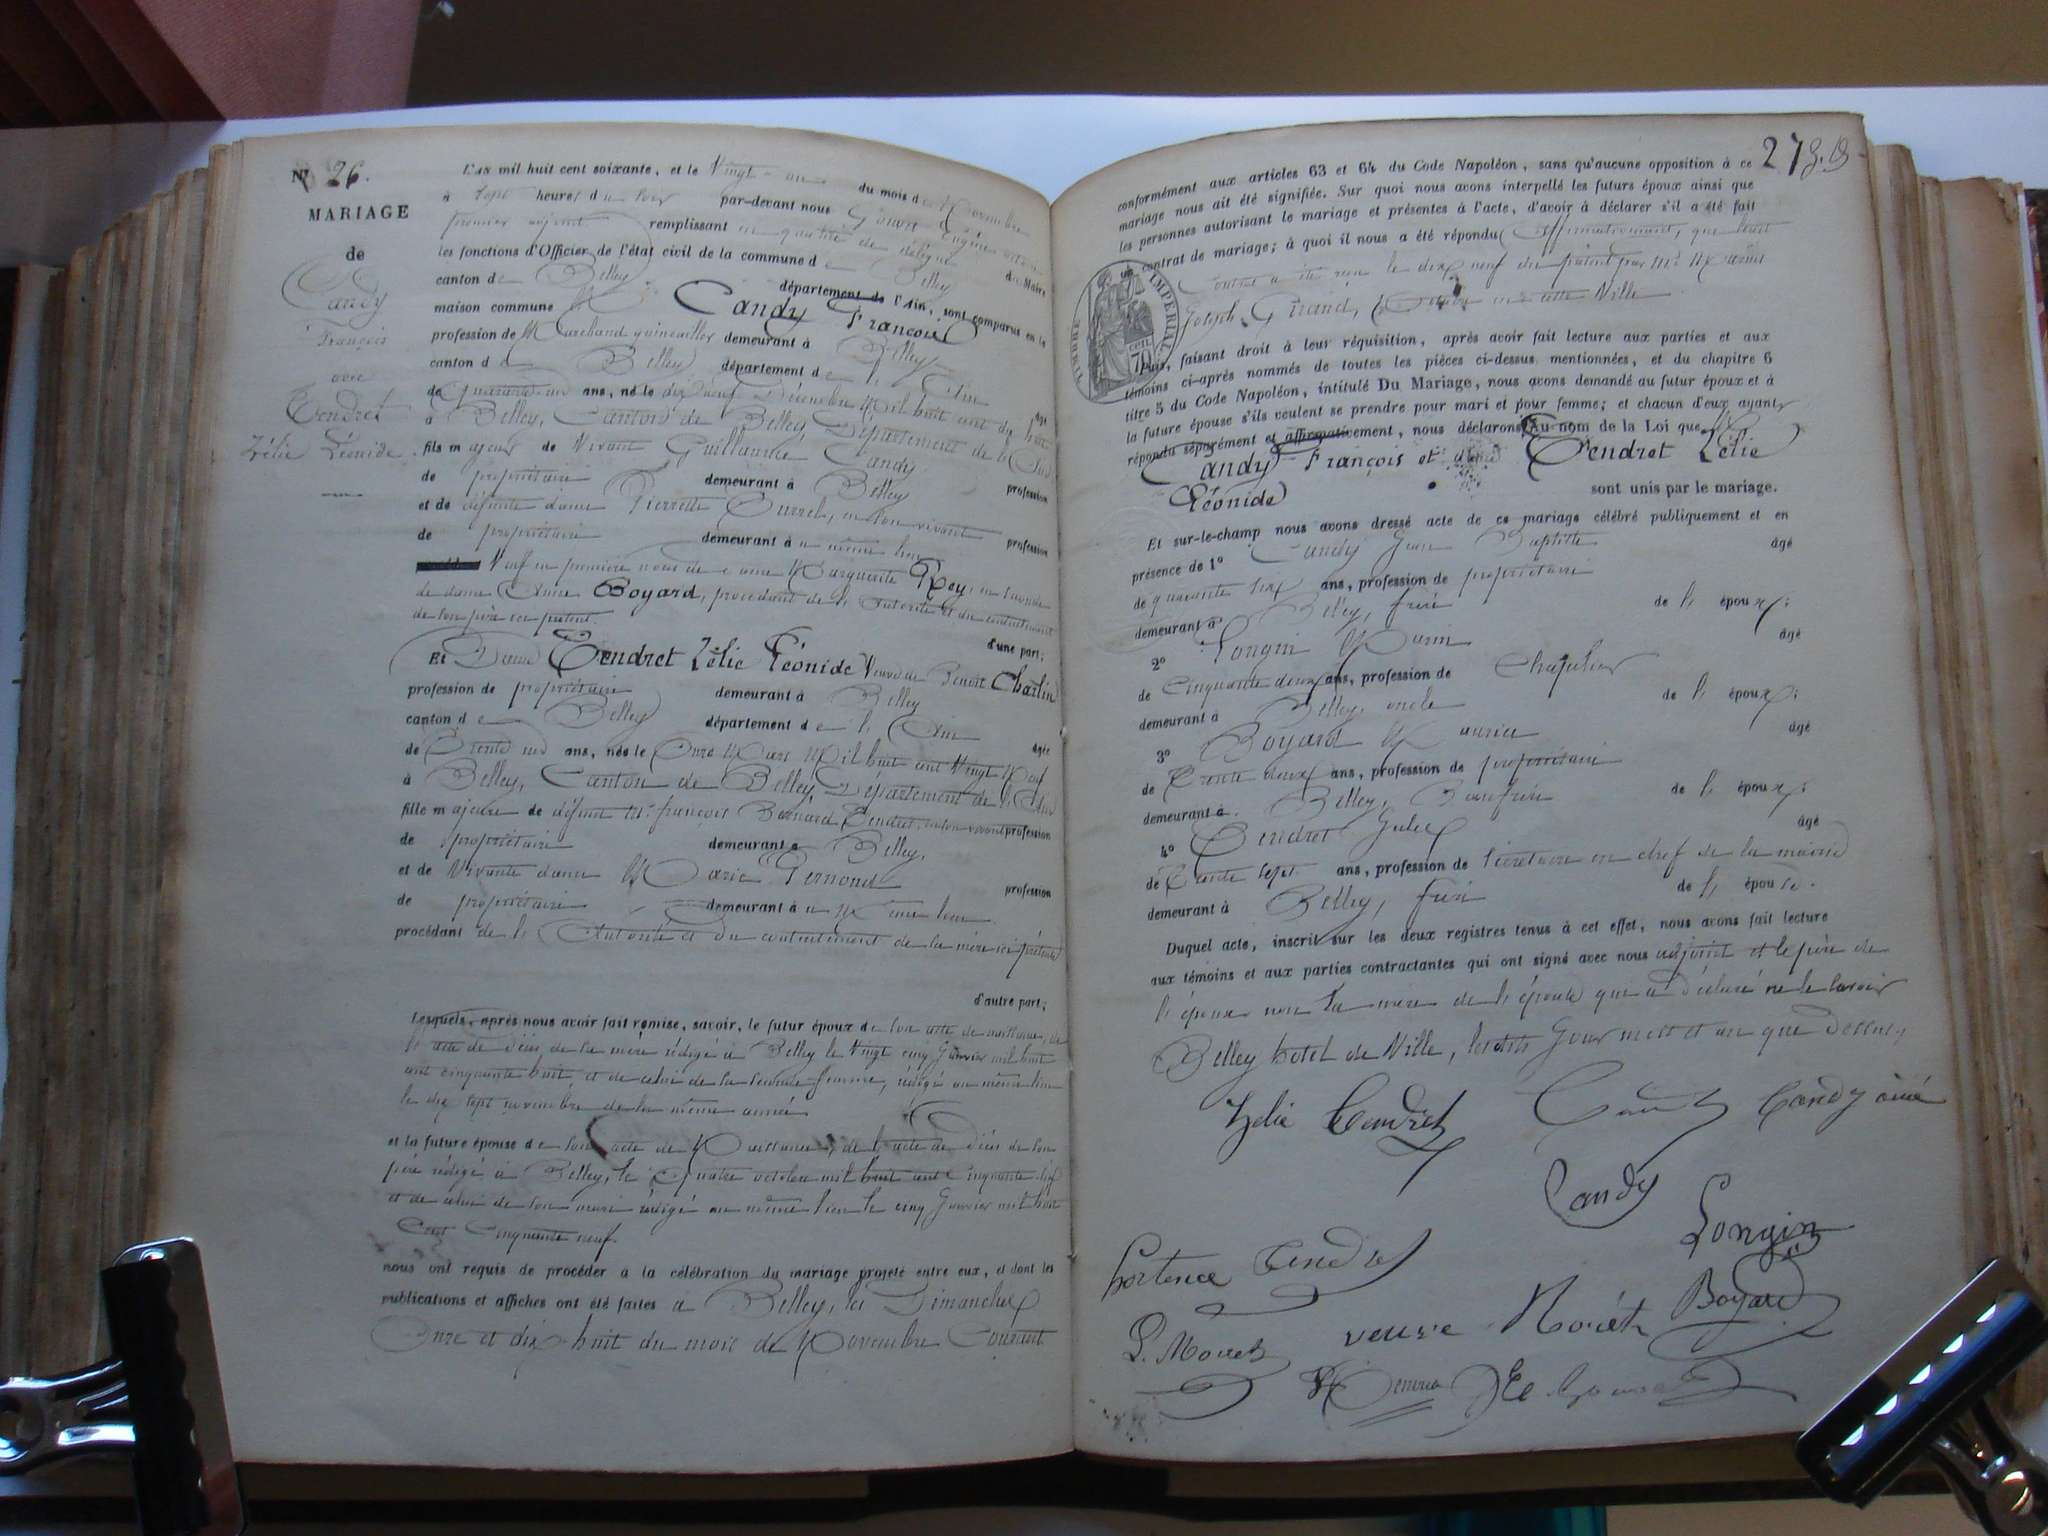 No 26.
MARIAGE
de
Candy
François
avec
Tendret
Zélie Léonide.
L'AN mil huit cent soixante, et le Vingt-un du mois de Novembre
à sept heures du soir par-devant nous Eugène
premier adjoint remplissant en qualité de délégué du Maire
les fonctions d'Officier de l'état civil de la commune de Belley
canton de Belley département de l'Ain, sont comparus en la
maison commune M. Candy François
profession de Marchand quincailler demeurant à Belley
canton de Belley département de l'Ain âgé
de Quarante-un ans, né le dix neuf Décembre Mil huit cent dix huit
à Belley, Canton de Belley, Département de l'Ain
fils majeur de vivant Guillaume Candy profession
de propriétaire demeurant à Belley
et de défunte dame Pierrette en son vivant profession
de propriétaire demeurant au même lieu
Veuf en première noces de dame Marguerite Rey, en seconde
de dame Boyard, procédant de l'Autorité et du consentement
de son père ici présent. d'une part;
Et Dame Tendret Zélie Léonide Veuve de Benoit Charlin
profession de propriétaire demeurant à Belley
canton de Belley département de l'Ain âgée
de Trente un ans, née le Onze Mars Mil huit cent Vingt Neuf
à Belley, Canton de Belley, Département de l'Ain
fille majeure de défunt Mr. françois Bernard Tendret, en son vivant profession
de propriétaire demeurant à Belley,
et de Vivante dame Marie Pernond profession
de propriétaire demeurant au Même lieu
procédant de l'Autorité et du consentement de la mère ici présente
d'autre part;
Lesquels, après nous avoir fait remise, savoir, le futur époux de son acte de naissance, de
l'acte de décès de sa mère rédigé à Belley le Vingt cinq Janvier mil huit
cent cinquante huit, et de celui de sa seconde femme, rédigé au même lieu
le dix sept novembre de la même année
et la future épouse de son acte de Naissance, de l'acte de décès de son
père rédigé à Belley, le Quatre octobre mil huit cent cinquante
et de celui de son mari rédigé au même lieu le cinq Janvier mil huit
Cent Cinquante neuf
nous ont requis de procéder à la célébration du mariage projeté entre eux, et dont les
publications et affiches ont été faites à Belley, les Dimanches
Onze et dix huit du mois de Novembre Courant
conformément aux articles 63 et 64 du Code Napoléon, sans qu'aucune opposition à ce
mariage nous ait été signifiée. Sur quoi nous avons interpellé les futurs époux ainsi que
les personnes autorisant le mariage et présentes à l'acte, d'avoir à déclarer s'il a été fait
un contrat de mariage; à quoi il nous a été répondu affirmativement, que leur
Contrat a été reçu le dix neuf du présent par Me
Joseph Grand, Notaire en cette Ville
TIMBRE IMPERIAL
70 CEN
Puis, faisant droit à leur réquisition, après avoir fait lecture aux parties et aux
témoins ci-après nommés de toutes les pièces ci-dessus mentionnées, et du chapitre 6
titre 5 du Code Napoléon, intitulé Du Mariage, nous avons demandé au futur époux et à
la future épouse s'ils veulent se prendre pour mari et pour femme; et chacun d'eux ayant
répondu séparément et affirmativement, nous déclarons Au nom de la Loi que
Candy François et dame Tendret Zélie
Léonide sont unis par le mariage.
Et sur-le-champ nous avons dressé acte de ce mariage célébré publiquement et en
présence de 1o Candy Jean Baptiste âgé
de quarante six ans, profession de propriétaire
demeurant à Belley, frère de l'époux;
2o Longin Marin âgé
de Cinquante deux ans, profession de Chapelier
demeurant à Belley, oncle de l'époux;
3o Boyard Maurice âgé
de Trente deux ans, profession de propriétaire
demeurant à Belley, Beaufrère de l'époux;
4o Tendret Jules âgé
de Trente sept ans, profession de secrétaire en chef de la mairie
demeurant à Belley, frère de l'épouse.
Duquel acte, inscrit sur les deux registres tenus à cet effet, nous avons fait lecture
aux témoins et aux parties contractantes qui ont signé avec nous adjoint et le père de
l'époux non la mère de l'épouse qui a déclaré ne le savoir
Belley hotel de Ville, lesdits Jour mois et an que dessus,
Zelie Tendret Candy Candy ainé
Candy Longin
hortence Tendret
Boyard
veuve Morét
L. Moret